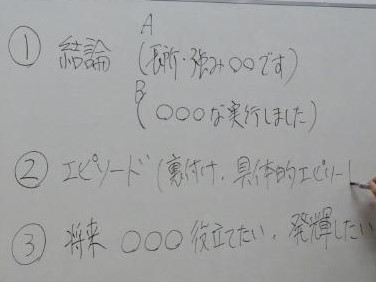 A
① 結論 (長所・強み○○です)
B
(○○○な実行しました)
② エピソード (裏付け、具体的エピソー
③ 将来 ○○○ 役立てたい、発揮したい